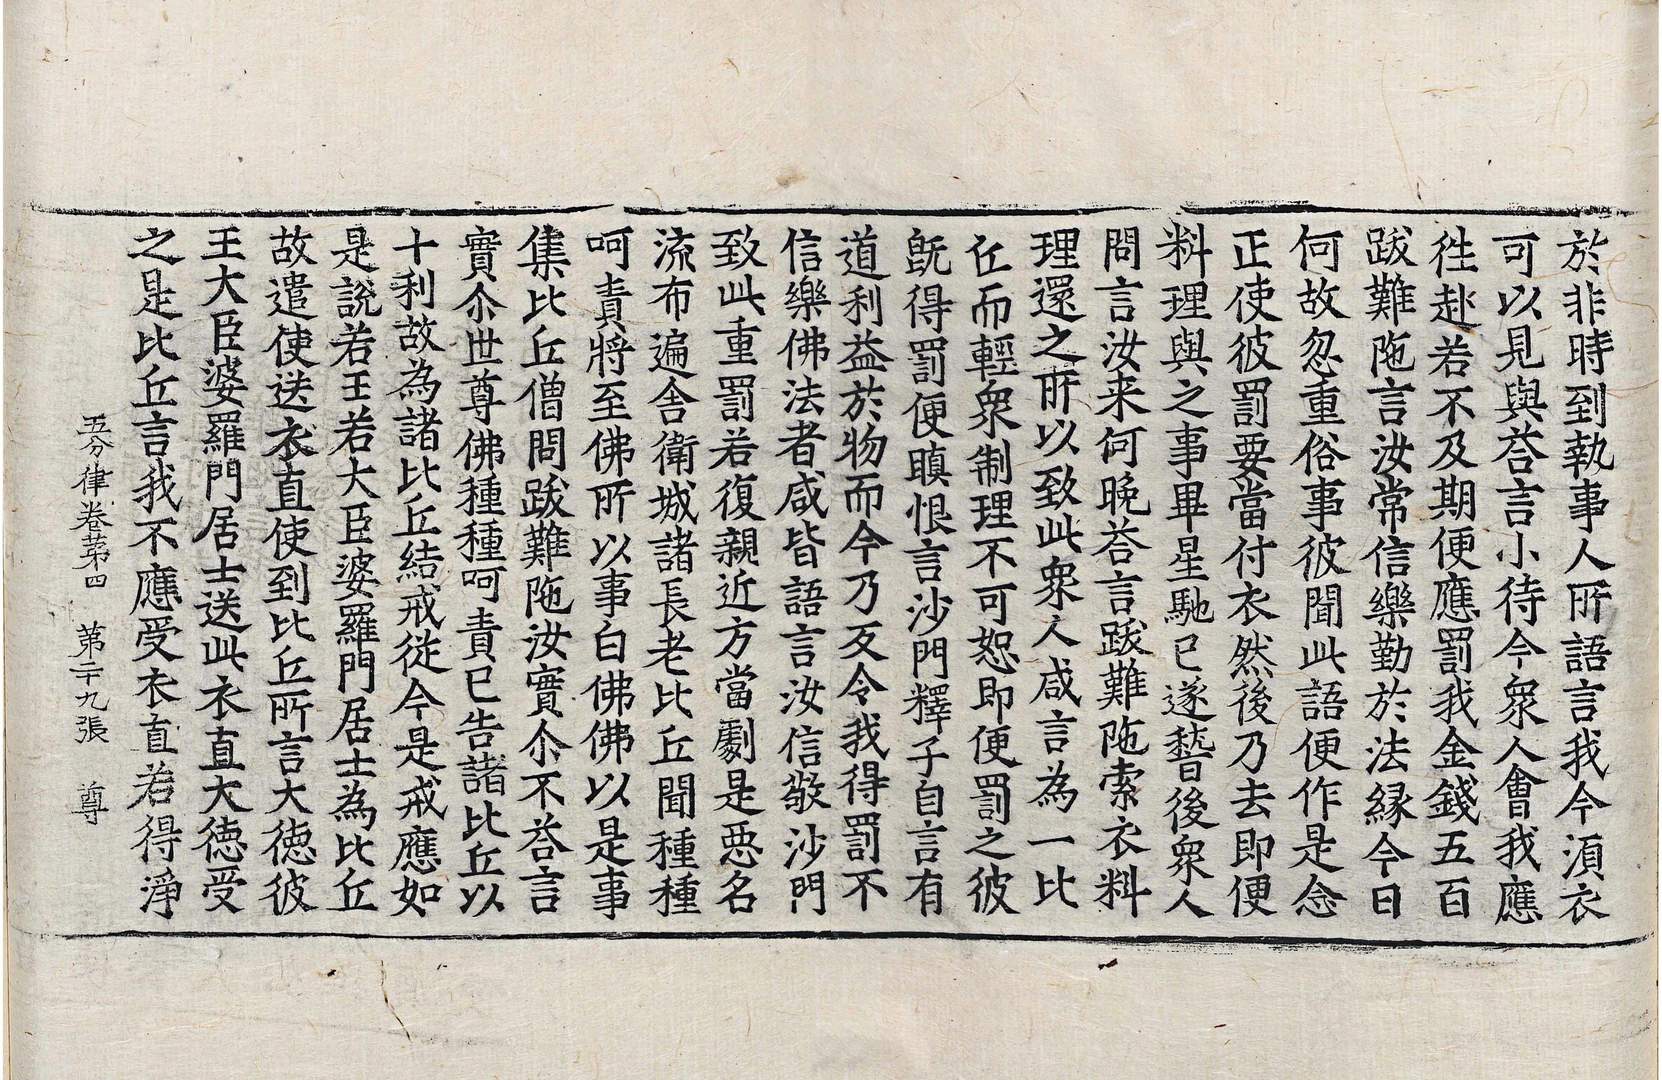 於非時到執事人所語言我今湏衣
可以見與荅言小待今衆人會我應
徃赴若不及期便應罰我金錢五百
跋難陁言汝常信樂勤於法縁今日
何故忽重俗事彼聞此語便作是念
正使彼罰要當付衣然後乃去即便
料理與之事畢星馳已遂嵇後衆人
問言汝来何晚荅言跋難陁索衣料
理還之所以致此衆人咸言為一比
丘而輕衆制理不可恕即便罰之彼
旣得罰便瞋恨言沙門釋子自言有
道利益於物而今乃反令我得罰不
信樂佛法者咸皆語言汝信敬沙門
致此重罰若復親近方當劇是惡名
流布遍舍衛城諸長老比丘聞種種
呵責將至佛所以事白佛佛以是事
集比丘僧問跋難陁汝實尒不荅言
實尒世尊佛種種呵責已告諸比丘以
十利故為諸比丘結戒從今是戒應如
是說若王若大臣婆羅門居士為比丘
故遣使送衣直使到比丘所言大德彼
王大臣婆羅門居士送此衣直大德受
之是比丘言我不應受衣直若得淨
五分律卷苐四 第二十九張 尊